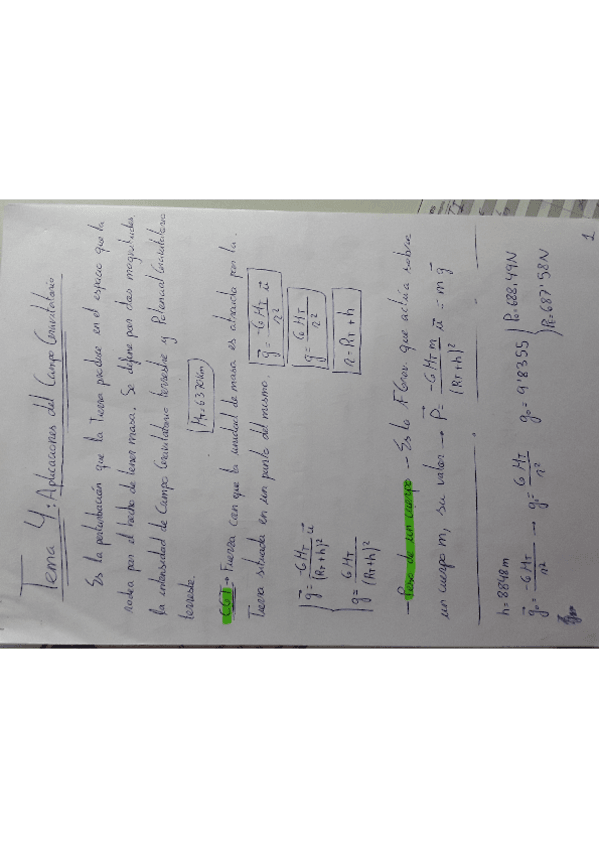 Tema 4: Aplicaciones del Campo Gravitatorio
Es la perturbación que la tierra produce en el espacio que la
rodea por el hecho de tener masa. Se define por dos magnitudes,
la intensidad de Campo Gravitatorio terrestre y Potencial Gravitatorio
terrestre.
M_T=6370Km
CGT → Fuerza con que la unidad de masa es atraida por la
Tierra situada en un punto del mismo.
g⃗ = -G M_T / (R_T+h)² u⃗
g = G M_T / (R_T+h)²
g⃗ = -G M_T / r² u⃗
g = G M_T / r²
r = R_T + h
- Peso de un cuerpo → Es la F Grav que actúa sobre
un cuerpo m, su valor → P⃗ = -G M_T m / (R_T+h)² u⃗ = m g⃗
h = 8848m
g⃗₀ = -G M_T / r² → g₀ = G M_T / r² g₀ = 9'8355 } P₀=688.49N
P₁=687'58N
1